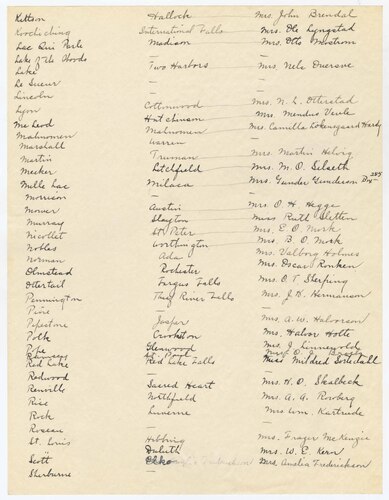 Kittson Hallock Mrs. John Brendal
Koochiching International Falls Mrs. Ole Lyngstad
Lac Qui Parle Madison Mrs. Otto Mostrom
Lake of the Woods — —
Lake Two Harbors Mrs. Nels
Le Sueur — —
Lincoln — —
Lyon Cottonwood Mrs. N. L. Otterstad
Mc Leod Hutchinson Mrs. Mendus Vevle
Mahnomen Mahnomen Mrs. Camilla Hardy
Marshall Warren —
Martin Truman Mrs. Martin Helvig
Meeker Litchfield Mrs. M. O. Selseth
Mille Lac Milaca Mrs. Gunder Gunderson Box 285
Morrison — —
Mower Austin Mrs. O. H. Hegge
Murray Slayton Miss Ruth Sletten
Nicollet St. Peter Mrs. E. O. Mork
Nobles Worthington Mrs. B. O. Mork
Norman Ada Mrs. Valborg Holmes
Olmstead Rochester Mrs. Oscar Ronken
Ottertail Fergus Falls Mrs. O. T.
Pennington Thief River Falls Mrs. J. H. Hermanson
Pine — —
Pipestone Jasper Mrs. A. W. Halvorson
Polk Crookston Mrs. Halvor Holte
Pope Glenwood Mrs. J. Linnevold
Ramsey St. Paul Mrs. O.
Red Lake Red Lake Falls Miss Mildred
Redwood — —
Renville Sacred Heart Mrs. H. O. Skalbeck
Rice Northfield Mrs. A. A. Rowberg
Rock Luverne Mrs. Wm. Kartrude
Roseau — —
St. Louis Hibbing Mrs. Frazer McKenzie
Duluth Mrs. W. E. Kern
Scott Elko Mrs. Amelia Frederickson
Sherburne — —